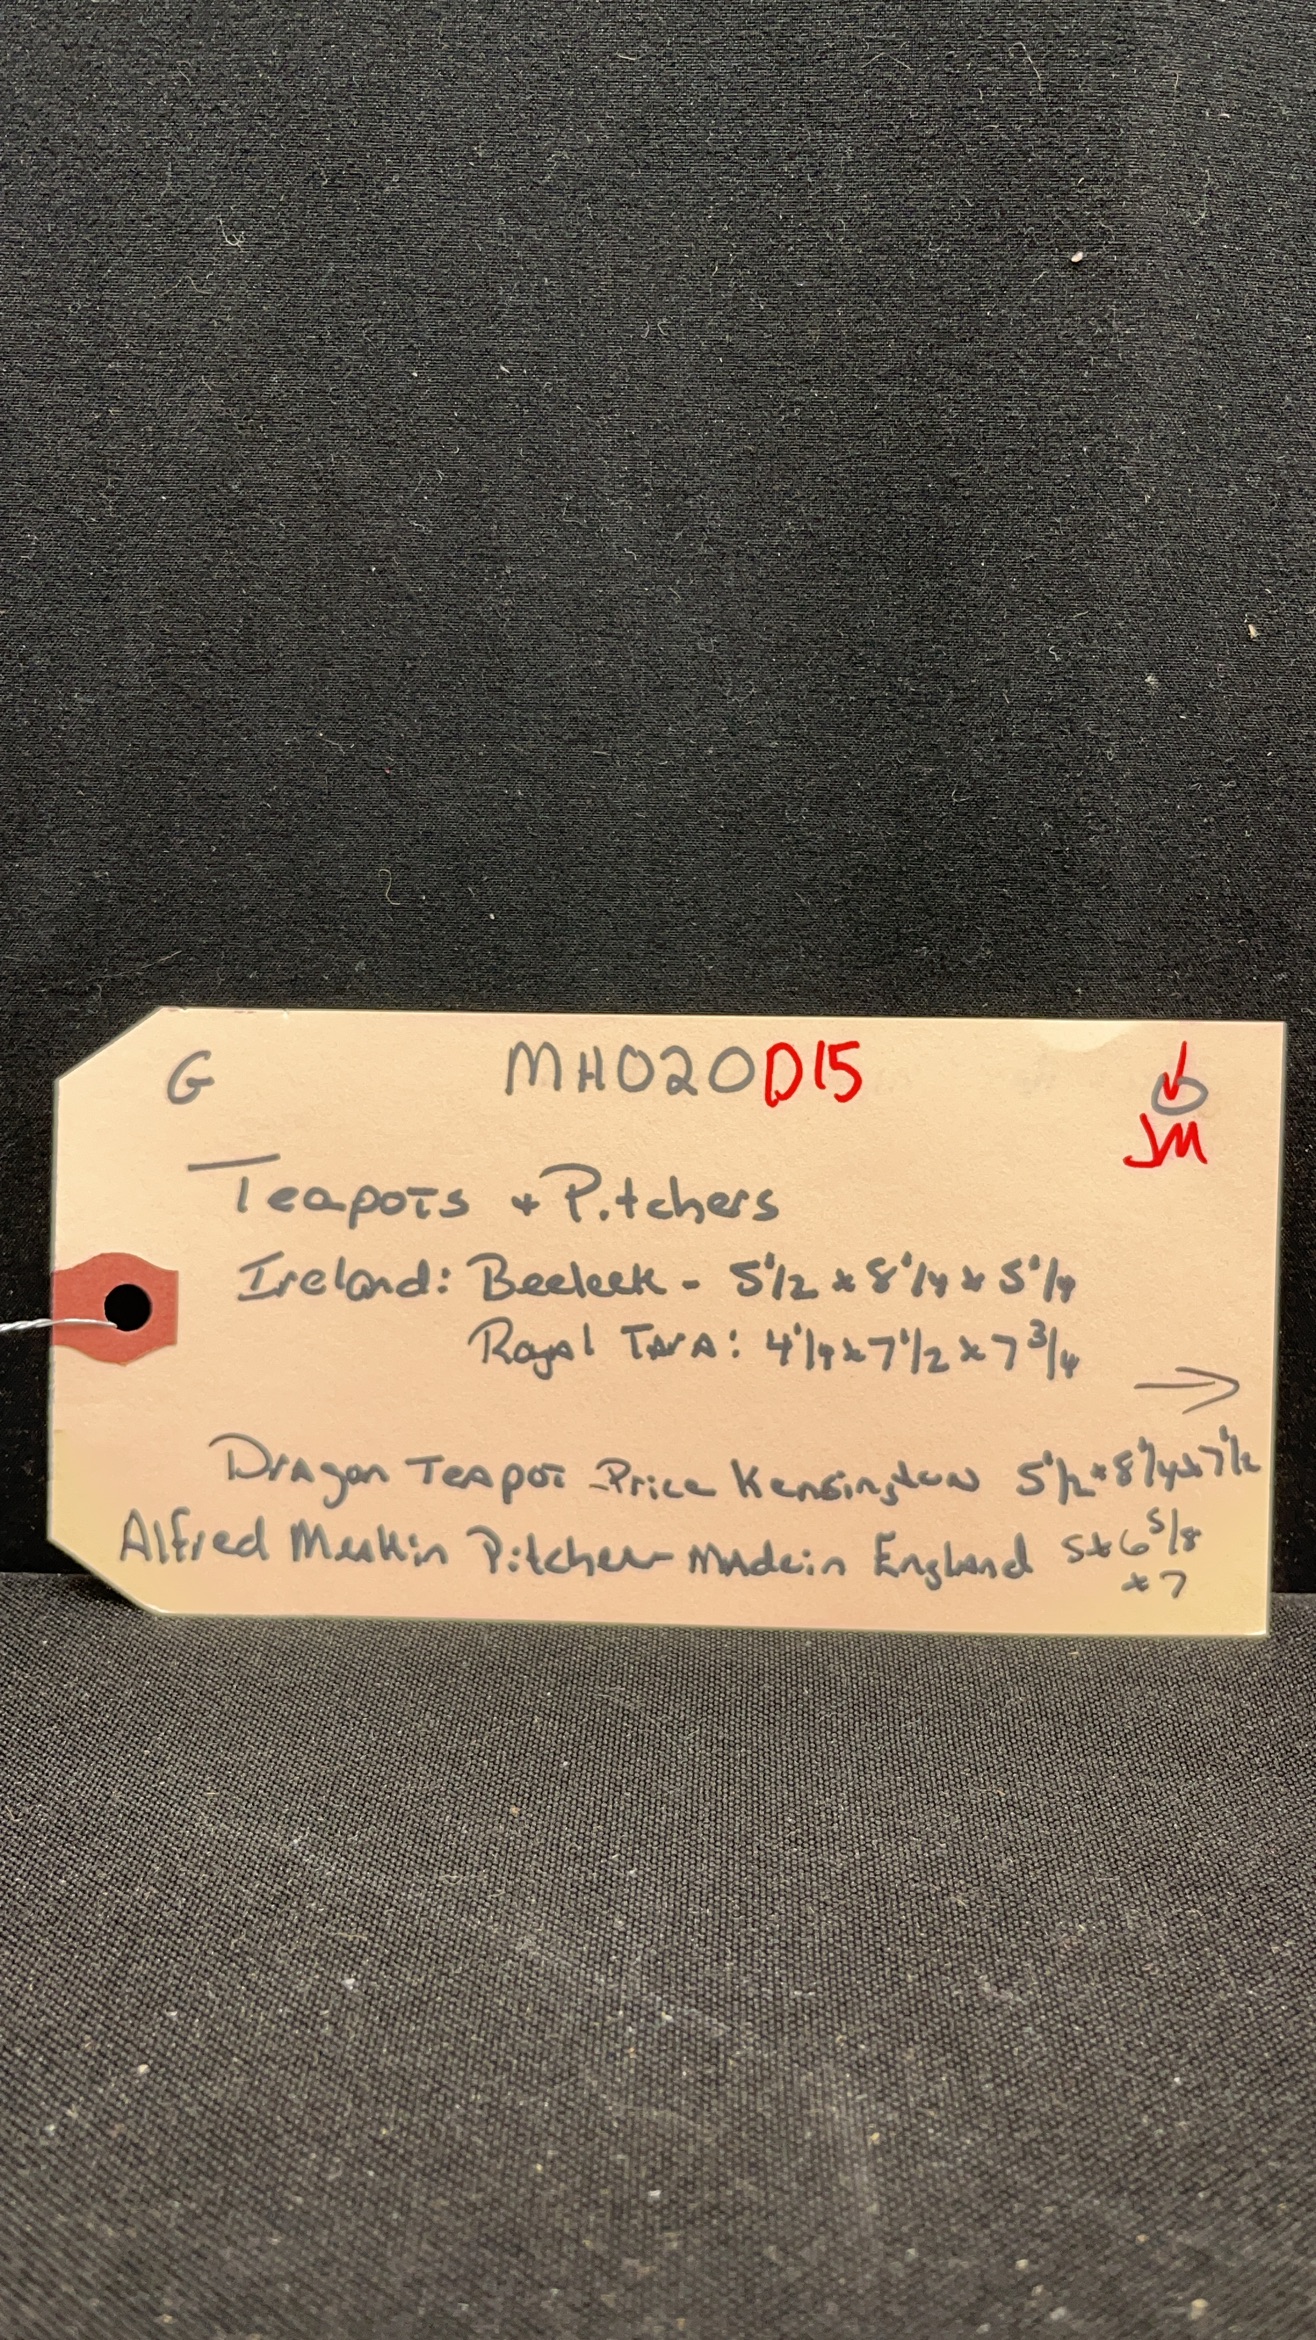 G MH020D15
JM
Teapots + Pitchers
Ireland: Beeleek - 5 1/2 x 8 1/4 x 5 1/4
Royal Tara: 4 1/4 x 7 1/2 x 7 3/4
→
Dragon Teapot - Price Kensington 5 1/2 x 8 1/4 x 7 1/2
Alfred Meakin Pitcher Made in England 5 x 6 5/8
x 7